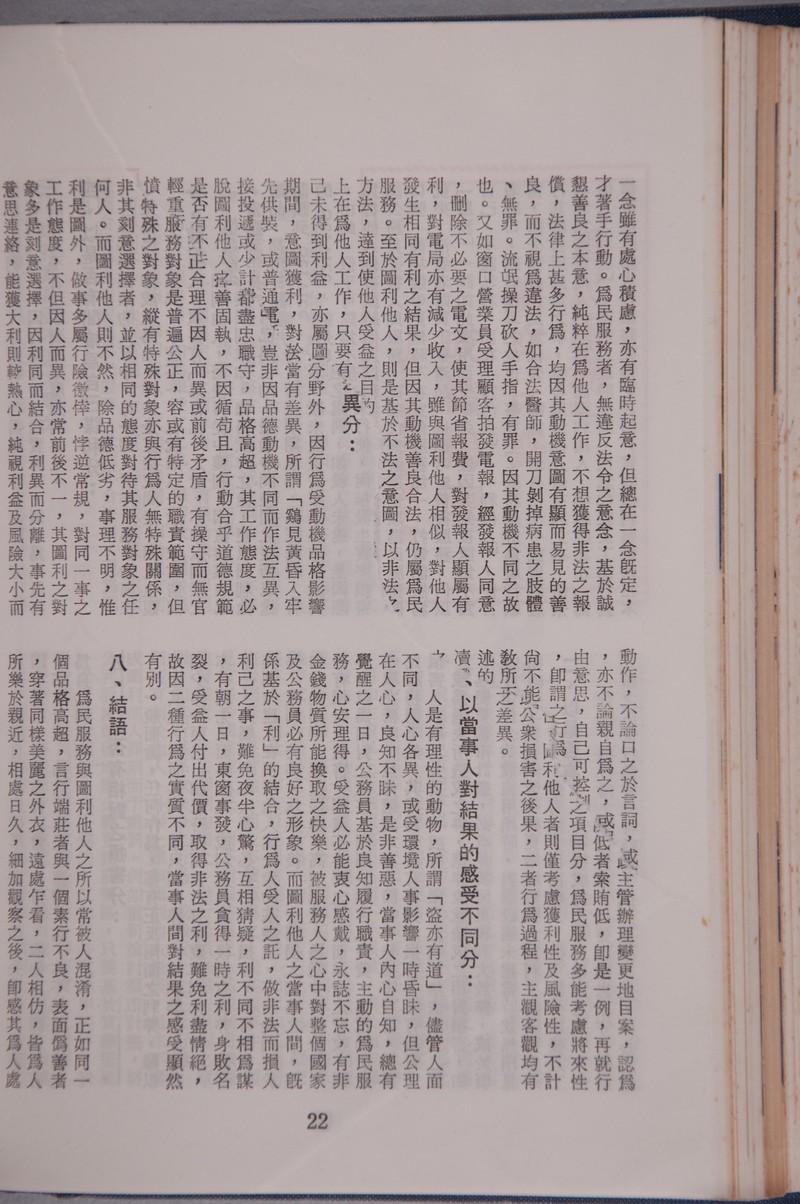 一念雖有處心積慮，亦有臨時起意，但總在一念既定，
才著手行動。爲民服務者，無違反法令之意念，基於誠
懇善良之本意，純粹在爲他人工作，不想獲得非法之報
償，法律上甚多行爲，均因其動機意圖有顯而易見的善
良，而不視爲違法，如合法醫師，開刀剝掉病患之肢體
、無罪。流氓操刀砍人手指，有罪。因其動機不同之故
也。又如窗口營業員受理顧客拍發電報，經發報人同意
，刪除不必要之電文，使其節省報費，對發報人顯屬有
利，對電局亦有減少收入，雖與圖利他人相似，對他人
發生相同有利之結果，但因其動機善良合法，仍屬爲民
服務。至於圖利他人，則是基於不法之意圖，以非法之
方法，達到使他人受益之目的
上在爲他人工作，只要有之異分：
己未得到利益，亦屬圖分野外，因行爲受動機品格影響
期間，意圖獲利，對於當有差異，所謂「鷄見黃昏入牢
先供裝，或普通電，豈非因品德動機不同而作法互異，
接投遞或少計都盡忠職守，品格高超，其工作態度，必
脫圖利他人擇善固執，不因循苟且，行動合乎道德規範
是否有不正合理不因人而異或前後矛盾，有操守而無官
輕重服務對象是普遍公正，容或有特定的職責範圍，但
憤特殊之對象，縱有特殊對象亦與行爲人無特殊關係，
非其刻意選擇者，並以相同的態度對待其服務對象之任
何人。而圖利他人則不然，除品德低劣，事理不明，惟
利是圖外，做事多屬行險徼倖，悖逆常規，對同一事之
工作態度，不但因人而異，亦常前後不一，其圖利之對
象多是刻意選擇，因利同而結合，利異而分離，事先有
意思連絡，能獲大利則較熱心，純視利益及風險大小而
動作，不論口之於言詞，或主管辦理變更地目案，認爲
，亦不論親自爲之，或低者索賄低，卽是一例，再就行
由意思，自己可控之項目分，爲民服務多能考慮將來性
，卽謂之行爲圖利他人者則僅考慮獲利性及風險性，不計
尙不能公衆損害之後果，二者行爲過程，主觀客觀均有
教所不之差異。
述的
瀆、以當事人對結果的感受不同分：
人是有理性的動物，所謂「盜亦有道」，儘管人面
不同，人心各異，或受環境人事影響一時昏昧，但公理
在人心，良知不昧，是非善惡，當事人內心自知，總有
覺醒之一日，公務員基於良知履行職責，主動的爲民服
務，心安理得。受益人必能衷心感戴，永誌不忘，有非
金錢物質所能換取之快樂，被服務人之心中對整個國家
及公務員必有良好之形象。而圖利他人之當事人間，旣
係基於「利」的結合，行爲人受人之託，做非法而損人
利己之事，難免夜半心驚，互相猜疑，利不同不相爲謀
，有朝一日，東窗事發，公務員貪得一時之利，身敗名
裂，受益人付出代價，取得非法之利，難免利盡情絕，
故因二種行爲之實質不同，當事人間對結果之感受顯然
有別。
八、結語：
爲民服務與圖利他人之所以常被人混淆，正如同一
個品格高超，言行端莊者與一個素行不良，表面僞善者
，穿著同樣美麗之外衣，遠處乍看，二人相仿，皆爲人
所樂於親近，相處日久，細加觀察之後，卽感其爲人處
22